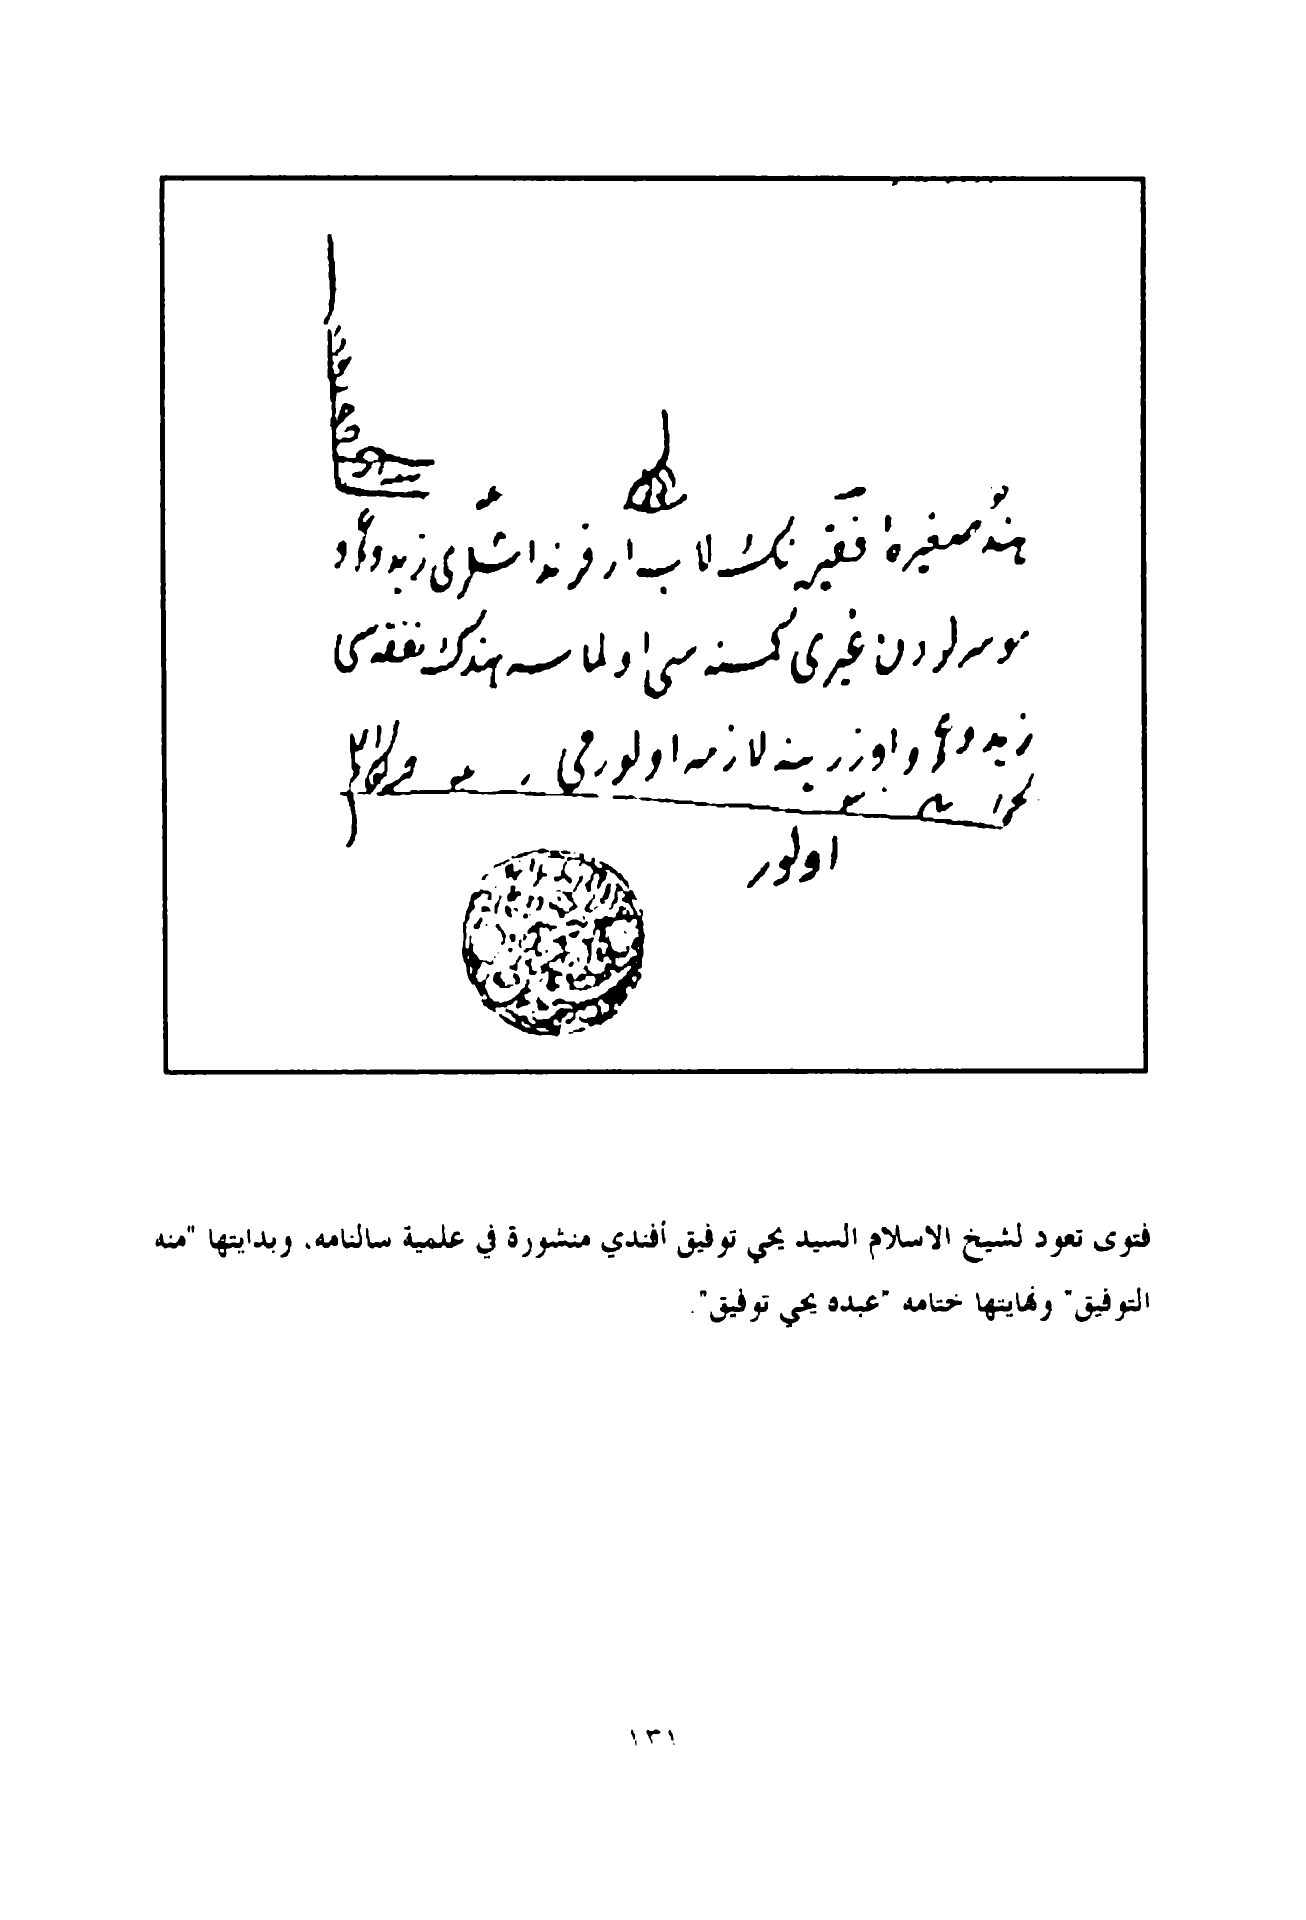 هند صغيرهٔ فقيره نك لاب ار قرنداشلرى زيد و عمرو
موسرلردن غيرى كمسنه سى اولماسه هندك نفقه سى
زيد و عمرو اوزرينه لازمه اولورمى
الجواب
اولور
فتوى تعود لشيخ الاسلام السيد يحي توفيق أفندي منشورة في علمية سالنامه. وبدايتها "منه
التوفيق" ونهايتها ختامه "عبده يحي توفيق".
١٣١